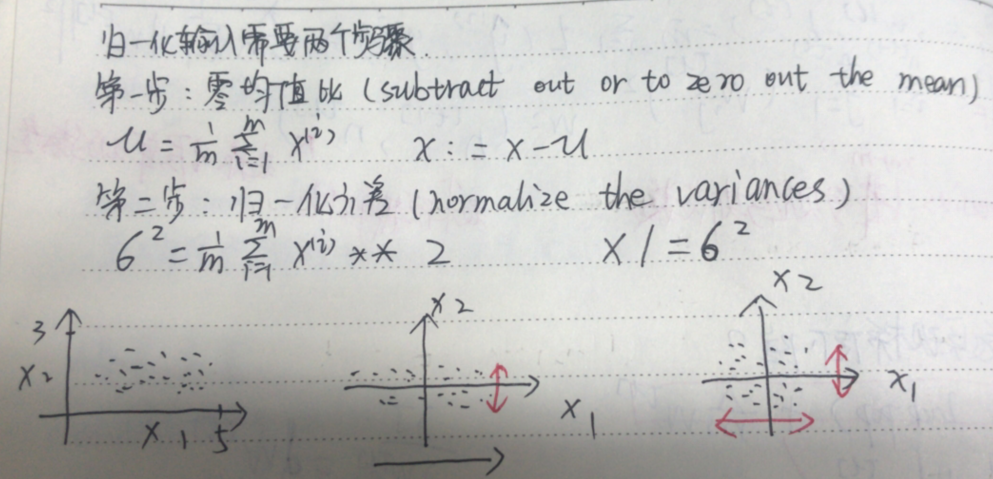 归一化输入需要两个步骤.
第一步：零均值化 (subtract out or to zero out the mean)
u = 1/m ∑_{i=1}^{m} x^{(i)} x := x - u
第二步：归一化方差 (normalize the variances)
6² = 1/m ∑_{i=1}^{m} x^{(i)} ** 2 x /= 6²
3 x₂ x₁ 5
x₂ x₁
x₂ x₁